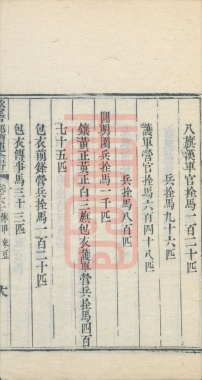 八旗漢軍官拴馬一百二十匹
兵拴馬九十六匹
護軍營官拴馬六百四十八匹
兵拴馬八百匹
圓明園兵拴馬一千匹
鑲黃正黃正白三旗包衣護軍營兵拴馬四百
七十五匹
包衣前鋒營兵拴馬一百二十匹
包衣傳事馬三十三匹